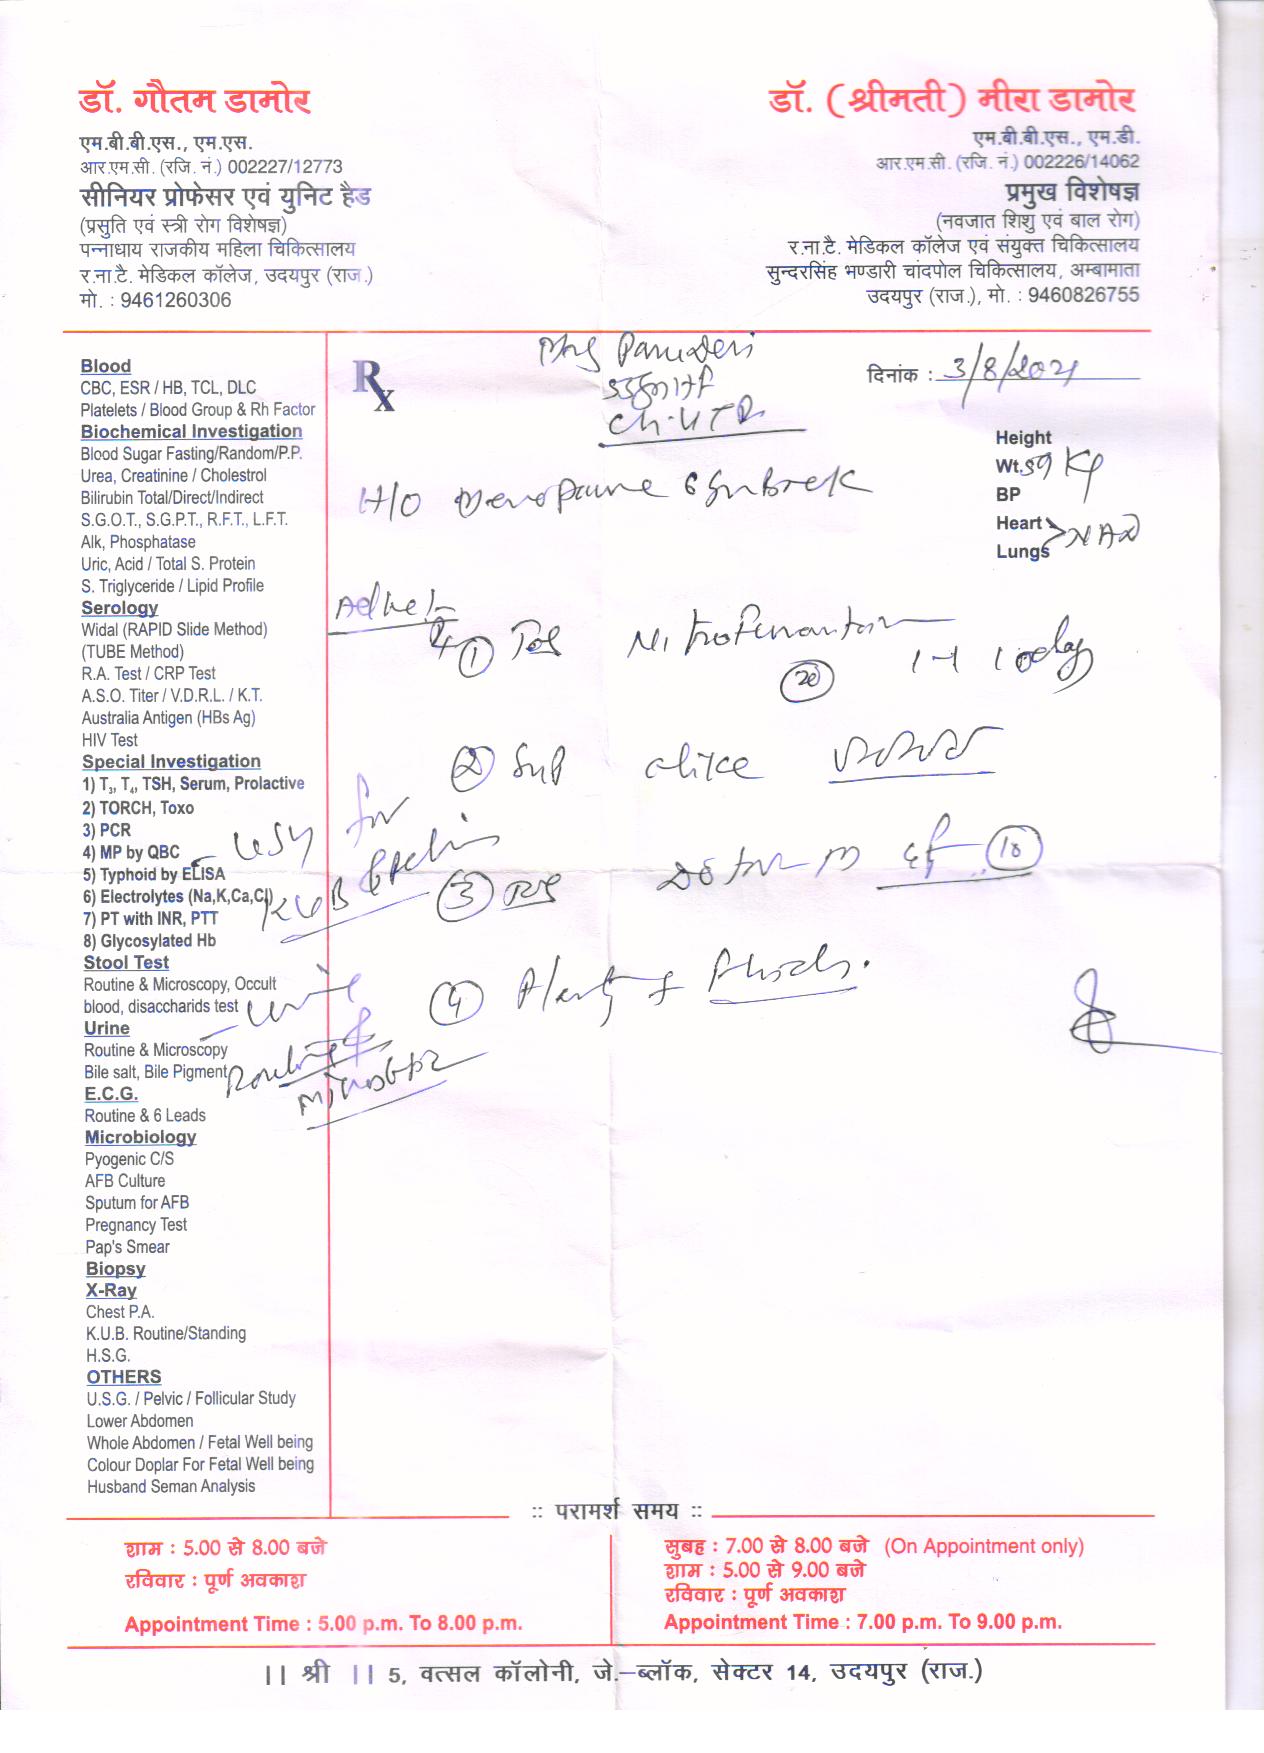 डॉ. गौतम डामोर
एम.बी.बी.एस., एम.एस.
आर.एम.सी. (रजि. नं.) 002227/12773
सीनियर प्रोफेसर एवं युनिट हैड
(प्रसुति एवं स्त्री रोग विशेषज्ञ)
पन्नाधाय राजकीय महिला चिकित्सालय
र.ना.टै. मेडिकल कॉलेज, उदयपुर (राज.)
मो. : 9461260306
डॉ. (श्रीमती) मीरा डामोर
एम.बी.बी.एस., एम.डी.
आर.एम.सी. (रजि. नं.) 002226/14062
प्रमुख विशेषज्ञ
(नवजात शिशु एवं बाल रोग)
र.ना.टै. मेडिकल कॉलेज एवं संयुक्त चिकित्सालय
सुन्दरसिंह भण्डारी चांदपोल चिकित्सालय, अम्बामाता
उदयपुर (राज.), मो. : 9460826755
Blood
CBC, ESR / HB, TCL, DLC
Platelets / Blood Group & Rh Factor
Biochemical Investigation
Blood Sugar Fasting/Random/P.P.
Urea, Creatinine / Cholestrol
Bilirubin Total/Direct/Indirect
S.G.O.T., S.G.P.T., R.F.T., L.F.T.
Alk, Phosphatase
Uric, Acid / Total S. Protein
S. Triglyceride / Lipid Profile
Serology
Widal (RAPID Slide Method)
(TUBE Method)
R.A. Test / CRP Test
A.S.O. Titer / V.D.R.L. / K.T.
Australia Antigen (HBs Ag)
HIV Test
Special Investigation
1) T3, T4, TSH, Serum, Prolactive
2) TORCH, Toxo
3) PCR
4) MP by QBC
5) Typhoid by ELISA
6) Electrolytes (Na,K,Ca,Cl)
7) PT with INR, PTT
8) Glycosylated Hb
Stool Test
Routine & Microscopy, Occult
blood, disaccharids test
Urine
Routine & Microscopy
Bile salt, Bile Pigment
E.C.G.
Routine & 6 Leads
Microbiology
Pyogenic C/S
AFB Culture
Sputum for AFB
Pregnancy Test
Pap's Smear
Biopsy
X-Ray
Chest P.A.
K.U.B. Routine/Standing
H.S.G.
OTHERS
U.S.G. / Pelvic / Follicular Study
Lower Abdomen
Whole Abdomen / Fetal Well being
Colour Doplar For Fetal Well being
Husband Seman Analysis
Rx
दिनांक : 3/8/2021
Height
Wt. 59 Kg
BP
Heart
Lungs NAD
H/O
1
1-1 10 days
2
for
KUB
3
10
4 Plenty of
urine
Routine &
:: परामर्श समय ::
शाम : 5.00 से 8.00 बजे
रविवार : पूर्ण अवकाश
Appointment Time : 5.00 p.m. To 8.00 p.m.
सुबह : 7.00 से 8.00 बजे (On Appointment only)
शाम : 5.00 से 9.00 बजे
रविवार : पूर्ण अवकाश
Appointment Time : 7.00 p.m. To 9.00 p.m.
|| श्री || 5, वत्सल कॉलोनी, जे.–ब्लॉक, सेक्टर 14, उदयपुर (राज.)